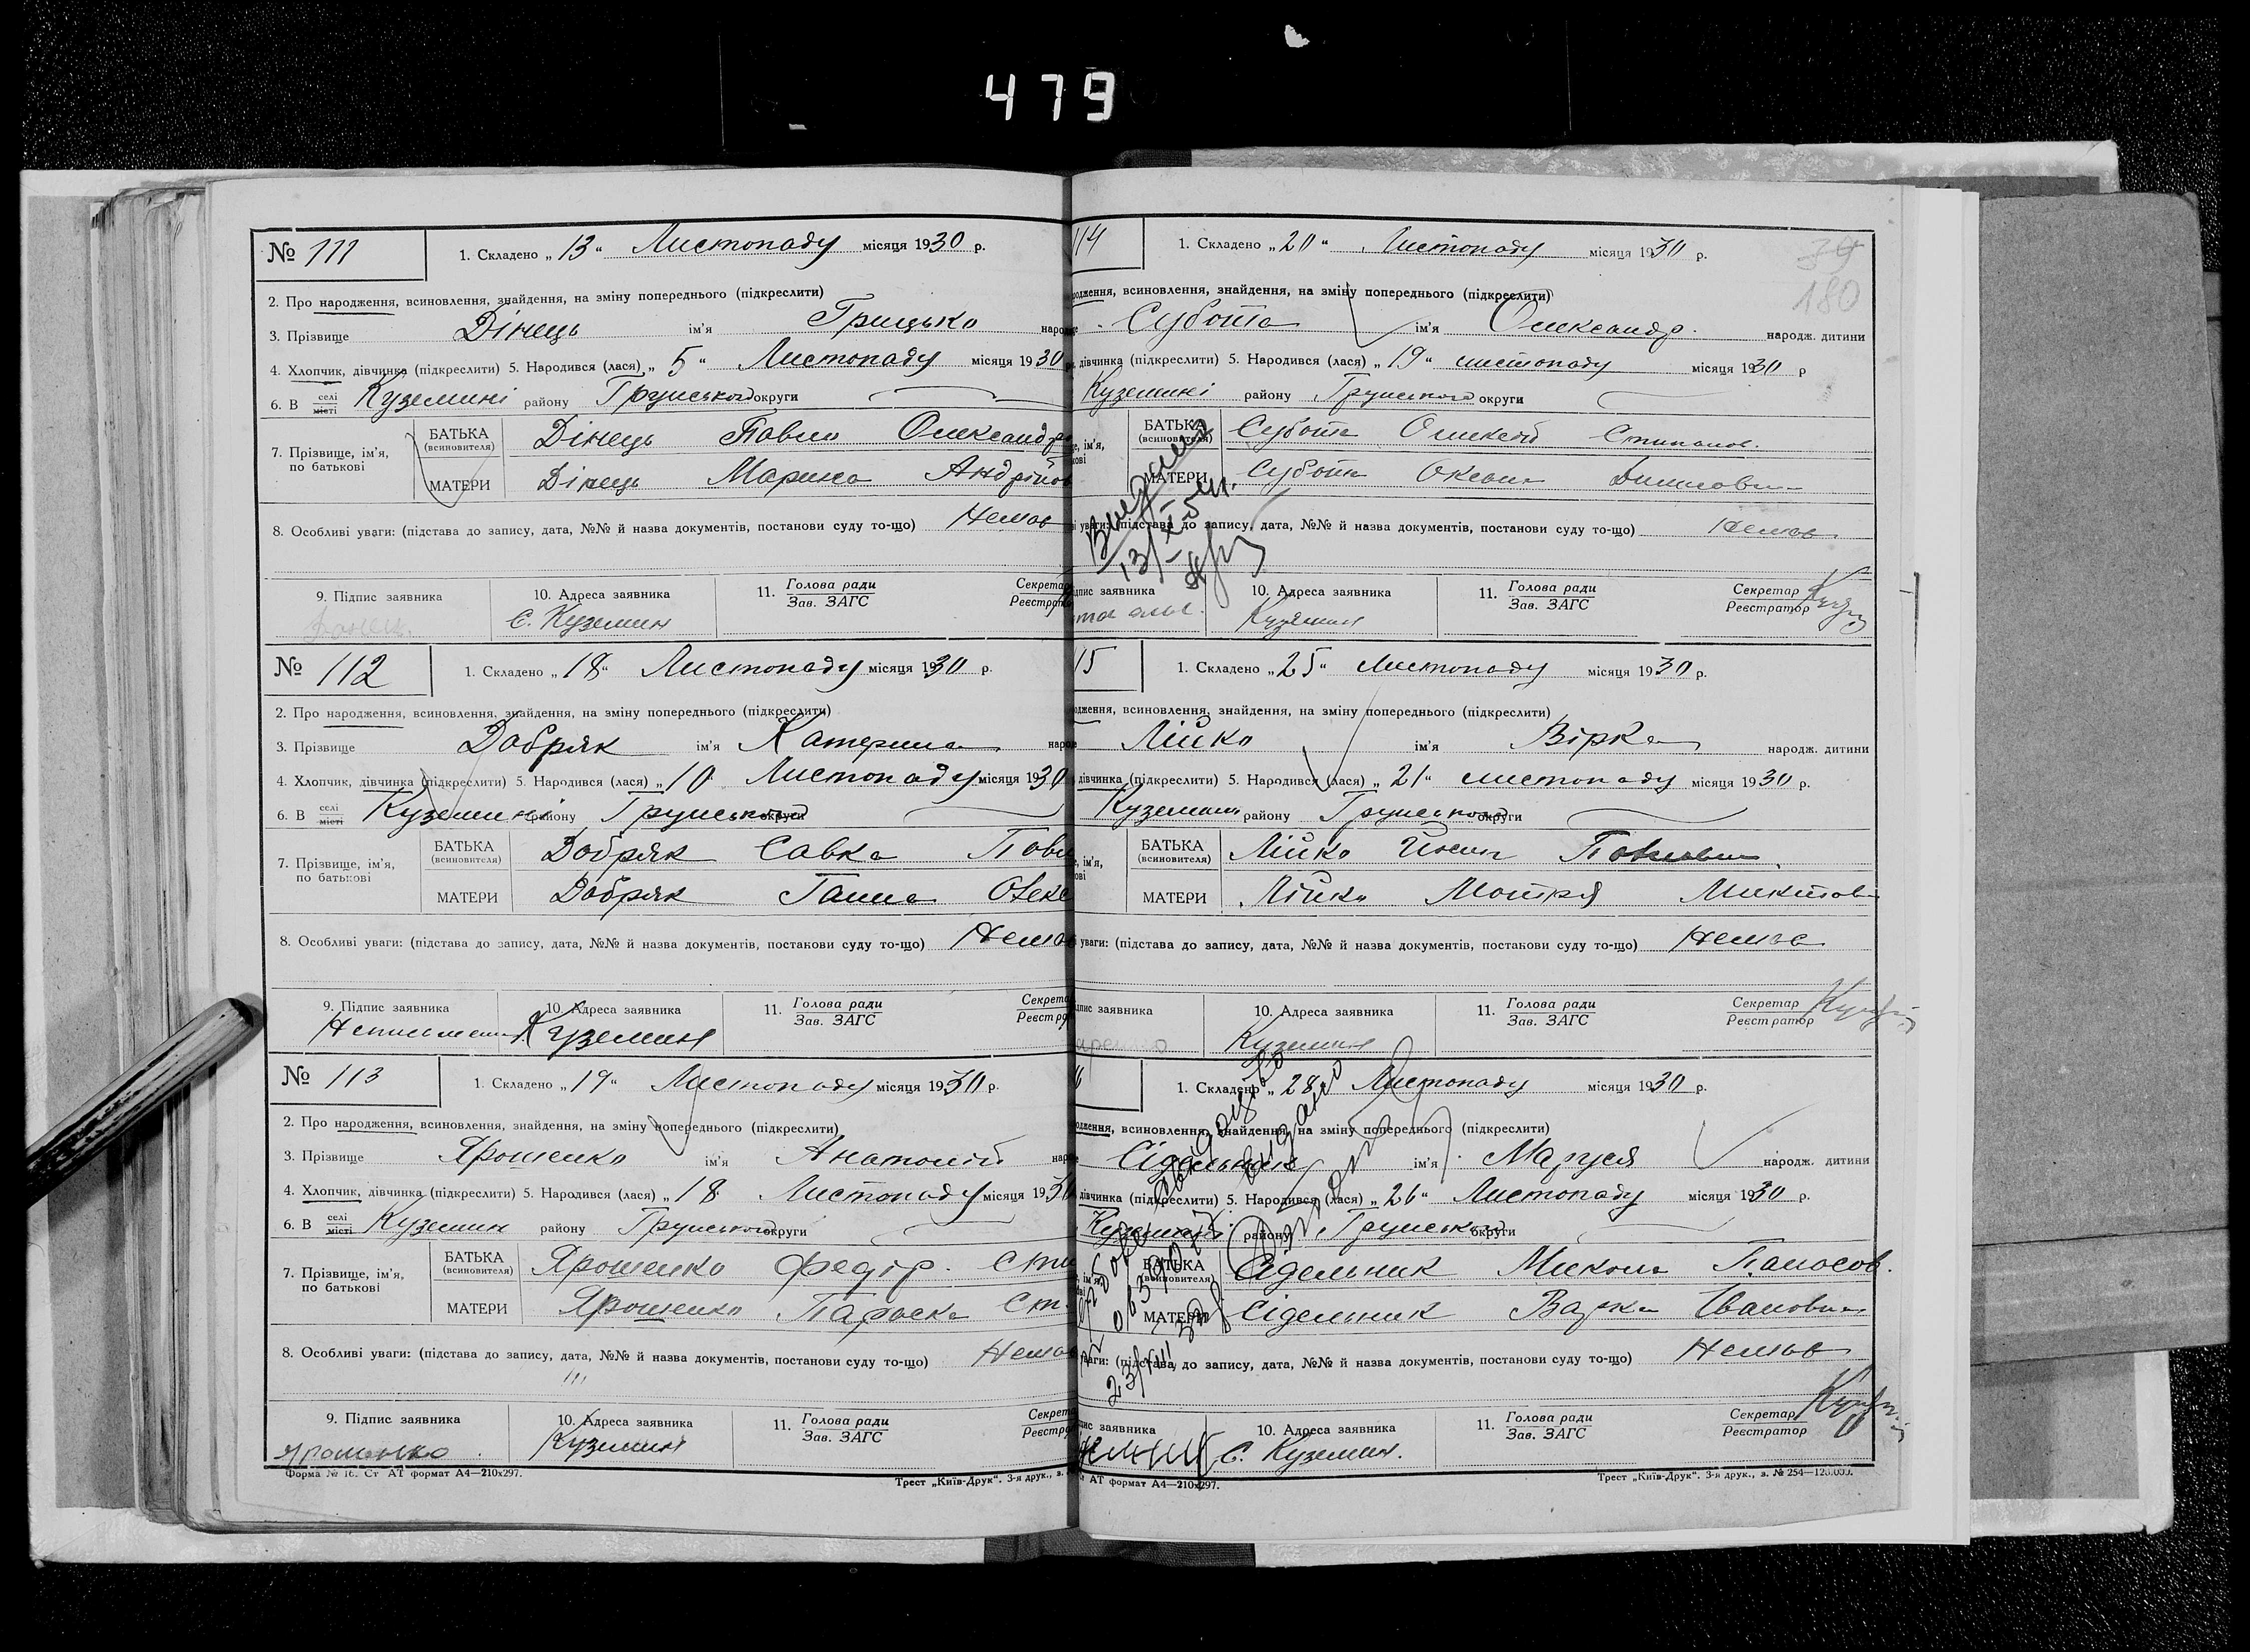 479
№ 111
1. Складено „13“ Листопаду місяця 1930 р.
2. Про народження, всиновлення, знайдення, на зміну попереднього (підкреслити)
3. Прізвище Дінець ім'я Грицько наро
4. Хлопчик, дівчинка (підкреслити) 5. Народився (лася) „5“ Листопаду місяця 1930
6. В селі місті Куземині району Грунського округи
7. Прізвище, ім'я, по батькові
БАТЬКА (всиновителя) Дінець Павло Олександро
МАТЕРИ Дінець Марина Андрійов
8. Особливі уваги: (підстава до запису, дата, №№ й назва документів, постанови суду то-що) Немає
9. Підпис заявника 10. Адреса заявника 11. Голова ради Зав. ЗАГС Секретар Реєстрато
с. Куземин
№ 112
1. Складено „18“ Листопаду місяця 1930 р.
2. Про народження, всиновлення, знайдення, на зміну попереднього (підкреслити)
3. Прізвище Добряк ім'я Катерина наро
4. Хлопчик, дівчинка (підкреслити) 5. Народився (лася) „10 Листопаду місяця 1930
6. В селі місті Куземині району Грунського округи
7. Прізвище, ім'я, по батькові
БАТЬКА (всиновителя) Добряк Савка Павл
МАТЕРИ Добряк Ганна Олекс
8. Особливі уваги: (підстава до запису, дата, №№ й назва документів, постанови суду то-що) Немає
9. Підпис заявника 10. Адреса заявника 11. Голова ради Зав. ЗАГС Секрета Реєстра
Неписьмен. Куземин
№ 113
1. Складено „19“ Листопаду місяця 1930 р.
2. Про народження, всиновлення, знайдення, на зміну попереднього (підкреслити)
3. Прізвище Ярошенко ім'я Анатолій наро
4. Хлопчик, дівчинка (підкреслити) 5. Народився (лася) „18 Листопаду місяця 1930
6. В селі місті Куземин району Грунського округи
7. Прізвище, ім'я, по батькові
БАТЬКА (всиновителя) Ярошенко Федір Сти
МАТЕРИ Ярошенко Параска Ст
8. Особливі уваги: (підстава до запису, дата, №№ й назва документів, постанови суду то-що) Немає
9. Підпис заявника 10. Адреса заявника 11. Голова ради Зав. ЗАГС Секрета Реєстра
Ярошенко Куземин
Форма № 16. Ст АТ формат А4—210х297. Трест „Київ-Друк“. 3-я друк., з.
114
1. Складено „20“ Листопаду місяця 1930 р.
39
180
одження, всиновлення, знайдення, на зміну попереднього (підкреслити)
Субота ім'я Олександр. народж. дитини
дівчинка (підкреслити) 5. Народився (лася) „19“ листопаду місяця 1930 р
Куземині району Грунського округи
БАТЬКА (всиновителя) Субота Олексій Степанов.
МАТЕРИ Субота Оксана
уваги: (підстава до запису, дата, №№ й назва документів, постанови суду то-що) Немає
дпис заявника 10. Адреса заявника 11. Голова ради Зав. ЗАГС Секретар Реєстратор
Куземин
15
1. Складено „25“ Листопаду місяця 1930 р.
одження, всиновлення, знайдення, на зміну попереднього (підкреслити)
Лійко ім'я Вірка народж. дитини
дівчинка (підкреслити) 5. Народився (лася) „21“ листопаду місяця 1930 р.
Куземин району Грунського округи
БАТЬКА (всиновителя) Лійко Йосип Павлович
МАТЕРИ Лійко Мотря Микитов
уваги: (підстава до запису, дата, №№ й назва документів, постанови суду то-що) Немає
дпис заявника 10. Адреса заявника 11. Голова ради Зав. ЗАГС Секретар Реєстратор
Куземин
6
1. Складено „28“ Листопаду місяця 1930 р.
одження, всиновлення, знайдення, на зміну попереднього (підкреслити)
Сідельник ім'я Маруся народж. дитини
дівчинка (підкреслити) 5. Народився (лася) „26“ Листопаду місяця 1930 р.
Куземині району Грунського округи
БАТЬКА (всиновителя) Сідельник Микола Панасов.
МАТЕРИ Сідельник Варка Івановна
уваги: (підстава до запису, дата, №№ й назва документів, постанови суду то-що) Немає
дпис заявника 10. Адреса заявника 11. Голова ради Зав. ЗАГС Секретар Реєстратор
с. Куземин.
АТ формат А4—210х297. Трест „Київ-Друк“. 3-я друк., з. № 254—120.000.